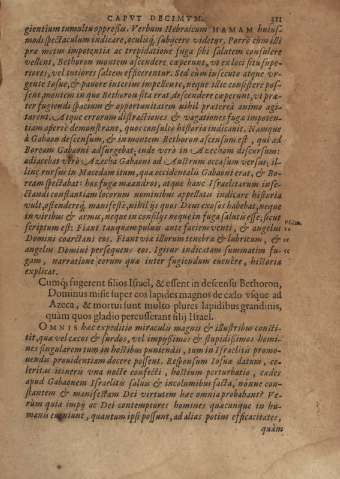 CAPVT DECIMVM. 311
gientium tumultu oppressa. Verbum Hebraicum HAMAM huius-
modi spectaculum indicare, oculisq́; subijcere videtur. Porrò cùm illi
præ metu impotentia ac trepidatione fuga sibi salutem consulere
vellent, Bethoron montem ascendere cœperunt, vt ex loci situ supe-
riores, vel tutiores saltem efficerentur. Sed cùm insecuto atque vr-
gente hoste, & pauore intecim impellente, neque illic consistere pos-
sent, montem in quo Bethoron sita erat descendere cœperunt, vt præ-
ter fugiendi spacium & opportunitatem nihil præterea animo agi-
tarent. Atque errorum distractiones & vagationes fuga impoten-
tiam apertè demonstrant, quos consultò historia indicauit. Namque
à Gabaon descensum, & in montem Bethoron ascensum est, qui ad
Boream Gabaoni adsurgebat, inde verò in Azecham descursum:
adiacebat verò Azecha Gabaoni ad Austrum occasum versus; il-
linc rursus in Macedam itum, qua occidentalis Gabaoni erat, & Bo-
ream spectabat: hos fuga mæandros, atque hanc Israelitarum inse-
ctandi constantiam locorum nominibus appellatis indicare historia
vult, ostendereq́; manifestè, nihil ijs quos Deus exosos habebat, neque
in viribus & armis, neque in consilijs neque in fuga salutis esse; sicut
scriptum est: Fiant tanquam puluis ante faciem venti, & angelus
Domini coarctans eos. Fiant viæ illorum tenebræ & lubricum, &
angelus Domini persequens eos. Igitur indicatam summatim fu-
gam, narratione eorum quæ inter fugiendum euenêre, historia
explicat.
Cumq́; fugerent filios Israel, & essent in descensu Bethoron,
Dominus misit super eos lapides magnos de cælo vsque ad
Azeca, & mortui sunt multo plures lapidibus grandinis,
quàm quos gladio percusserant filij Israel.
OMNIS hæc expeditio miraculis magnis & illustribus consti-
tit, quæ vel cæcos & surdos, vel impijssimos & stupidissimos homi-
nes singularem tum in hostibus puniendis, tum in Israelitis promo-
uendis prouidentiam docere possent. Responsum Iosuæ datum, ce-
leritas itineris vna nocte confecti, hostium perturbatio, cædes
apud Gabaonem Israelitis saluis & incolumibus facta, nónne con-
stantem & manifestam Dei virtutem hæc omnia probabant? Ve-
rùm quia impij ac Dei contemptores homines quacunque in hu-
manis eueniunt, quantum ipsi possunt, ad alias potius efficacitates,
quàm